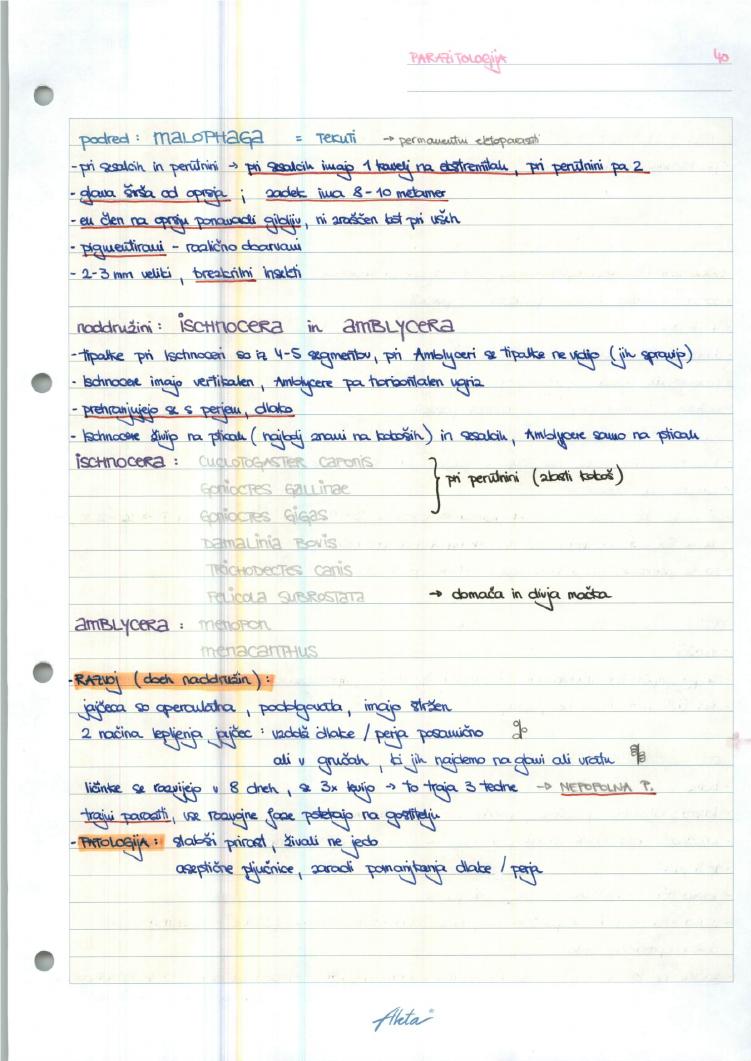 PARAZITOLOGIJA 40
podred : MALOPHAGA = TEKUTI → permanentni ektoparaziti
- pri sesalcih in perutnini → pri sesalcih imajo 1 kavelj na ekstremitetah, pri perutnini pa 2
- glava širša od oprsja ; zadek ima 8-10 metamer
- en člen na oprsju ponavadi gibljiv, ni zraščen kot pri ušeh
- pigmentirani - različno obarvani
- 2-3 mm veliki, brezkrilni insekti
naddružini : ISCHNOCERA in AMBLYCERA
- tipalke pri Ischnoceri so iz 4-5 segmentov, pri Amblyceri se tipalke ne vidijo (jih spravijo)
- Ischnocere imajo vertikalen, Amblycere pa horizontalen ugriz
- prehranjujejo se s perjem, dlako
- Ischnocere živijo na pticah (najbolj znani na kokoših) in sesalcih, Amblycere samo na pticah
ISCHNOCERA : CUCLOTOGASTER CAPONIS
GONIOCTES GALLINAE } pri perutnini (zlasti kokoš)
GONIOCTES GIGAS
DAMALINIA BOVIS
TRICHODECTES CANIS
FELICOLA SUBROSTATA → domača in divja mačka
AMBLYCERA : MENOPON
MENACANTHUS
- RAZVOJ (obeh naddružin) :
jajčeca so operculatna, podolgovata, imajo stržen
2 načina lepljenja jajčec : vzdolž dlake / perja posamično
ali v gručah, ki jih najdemo na glavi ali vratu
ličinke se razvijejo v 8 dneh, se 3x levijo → to traja 3 tedne → NEPOPOLNA P.
trajni paraziti, vse razvojne faze potekajo na gostitelju
- PATOLOGIJA : slabši prirast, živali ne jedo
aseptične pljučnice, zaradi pomanjkanja dlake / perja
Aleta